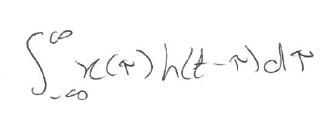 ∫_{-∞}^{∞} x(τ) h(t-τ) dτ